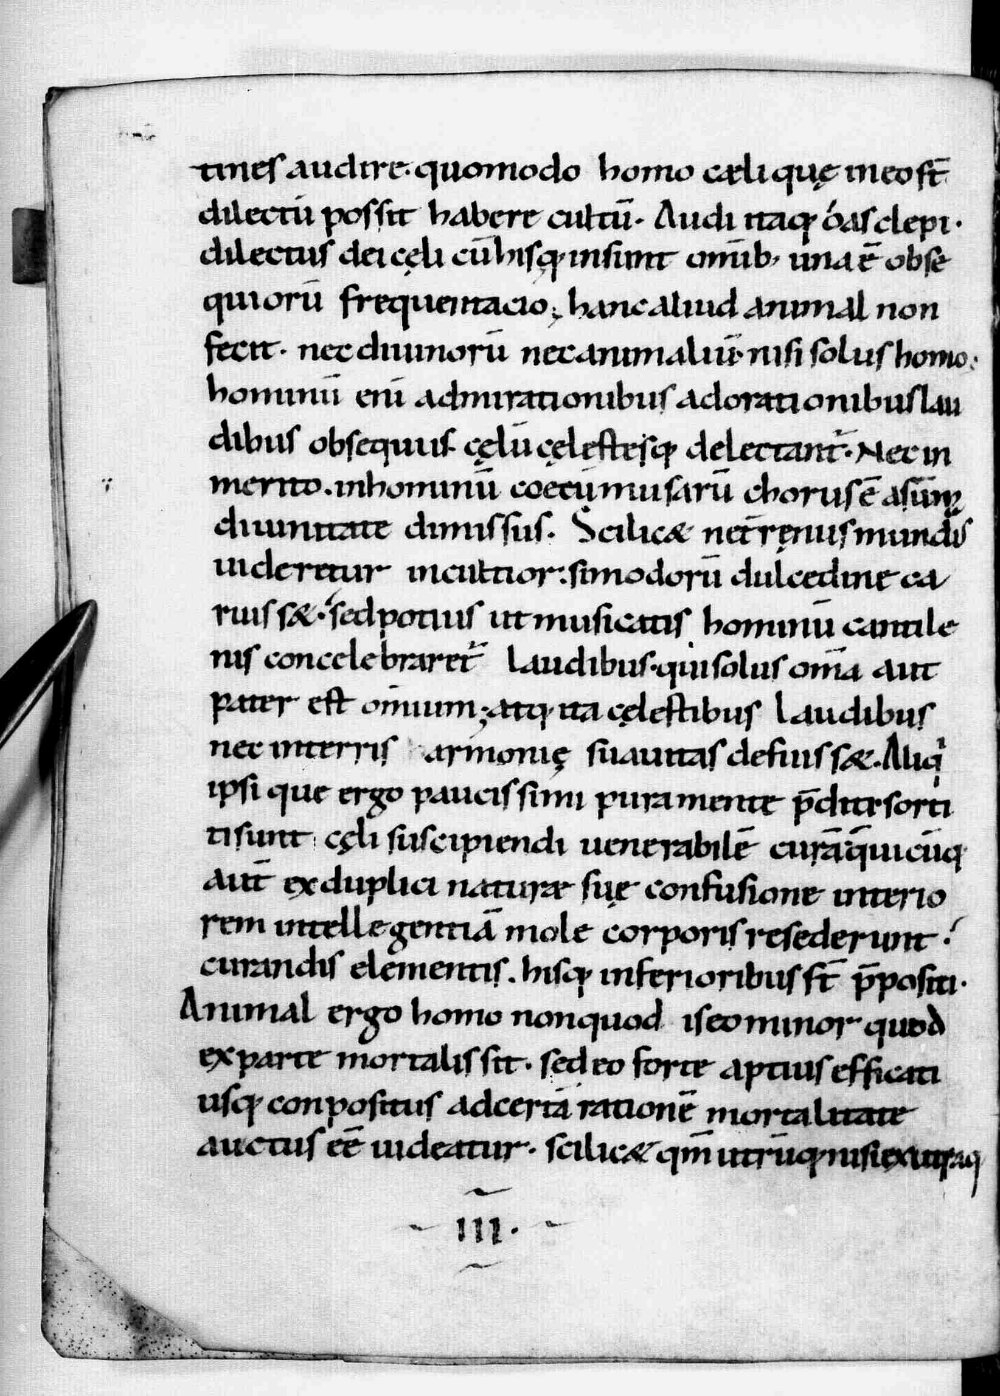 tines audire· quomodo homo cæli quę in eo st̄
dilectū possit habere cultū· Audi itaq; ó asclepi·
dilectus dei cęli cū hisq; insunt om̄ib; una ē obse
quiorū frequentacio; hanc aliud animal non
fecit· nec diuinorū nec animaliū· nisi solus homo;
hominū eni admirationibus adorationibus lau
dibus obsequiis cęlū cęlestesq; delectant᷑· Nec in
merito. in hominū coetū musarū chorus ē a sūm̄a
diuinitate dimissus. Scilicæ ne t̄renus mundus
uideretur incultior· si modorū dulcedine ca
ruissæ· sed potius ut musicatis hominū cantile
nis concelebraret᷑ laudibus· qui solus om̄a aut
pater est om̄ium; atq; ita cęlestibus laudibus
nec in terris armonię suauitas defuissæ. Aliq
ipsi que ergo paucissimi pura mente p̄diti sorti
ti sunt cęli suscipiendi uenerabilē curā quicūq;
aut̄ ex duplici naturæ suę confusione interio
rem intellegentiā mole corporis resederunt·
curandis elementis. hisq; inferioribus st̄ p̄positi·
Animal ergo homo non quod is eo minor quod
ex parte mortalis sit· sed eo forte aptius efficati
usq; conpositus ad certā rationē mortalitate
auctus eē uideatur· scilicæ qm̄ utrūq; nisi ex utraq;
III·